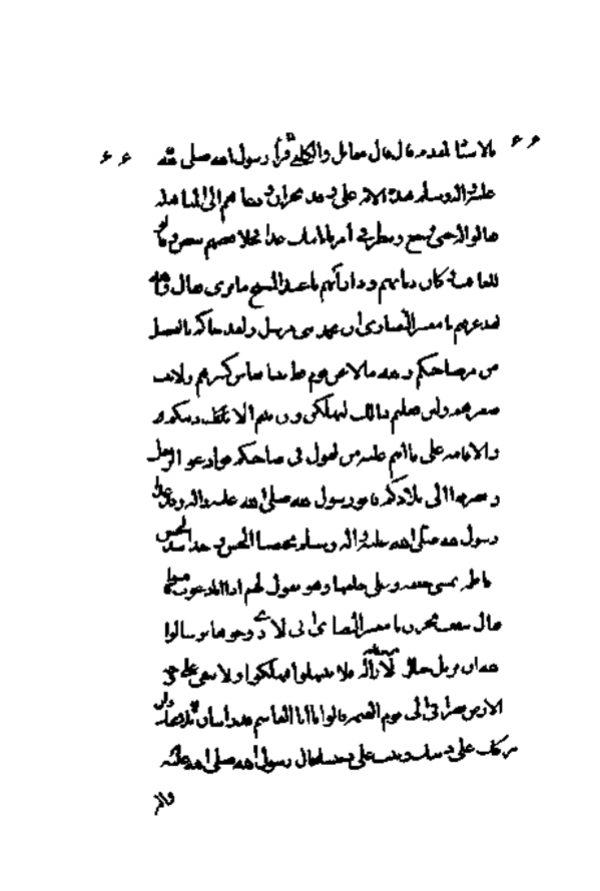 ۶۶ بالاسناد المقدم قال قال مقاتل والكلبي لما قرأ رسول الله صلى الله ۶۶
عليه وآله وسلم هذه الاية على وفد نجران ودعاهم الى المباهلة
قالوا له حتى نرجع وننظر في أمرنا ونأتيك غدا فخلا بعضهم ببعض فقالوا
للعاقب وكان ديانهم وذا رأيهم يا عبد المسيح ما ترى فقال والله
لقد عرفتم يا معشر النصارى ان محمد نبي مرسل ولقد جاءكم بالفصل
من امر صاحبكم والله ما لاعن قوم قط نبيا فعاش كبيرهم ولا نبت
صغيرهم ولئن فعلتم ذلك لتهلكن وان ابيتم الا الف دينكم
والاقامة على ما انتم عليه من القول في صاحبكم فوادعوا الرجل
وانصرفوا الى بلادكم فاتوا رسول الله صلى الله عليه واله وقد غدا
رسول الله صلى الله عليه واله وسلم محتضنا الحسين اخذا بيد الحسن
فاطمة تمشي خلفه وعلي خلفها وهو يقول لهم اذا انا دعوت فامنوا
فقال اسقف نجران يا معشر النصارى اني لارى وجوها لو سالوا
الله ان يزيل جبلا من مكانه لازاله فلا تبتهلوا فتهلكوا ولا يبقى على وجه
الارض نصراني الى يوم القيمة فقالوا يا ابا القاسم قد راينا ان لا نلاعنك وان
نتركك على دينك ونثبت على ديننا فقال رسول الله صلى الله عليه
واله